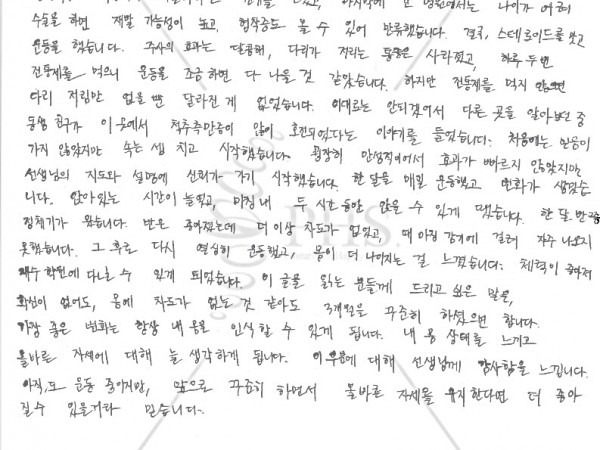 수술을 하면 재발 가능성이 높고, 협착증도 올 수 있어 만류했습니다. 결국, 스테로이드를 맞고
운동을 했습니다. 주사의 효과는 달콤해, 다리가 저리는 통증은 사라졌고, 하루 두 번
진통제를 먹으니 운동을 조금 하면 다 나을 것 같았습니다. 하지만 진통제를 먹지 않으면
다리 저림만 없을 뿐 달라진 게 없었습니다. 이대로는 안되겠어서 다른 곳을 알아보던 중
동생 친구가 이 곳에서 척추측만증이 많이 호전되었다는 이야기를 들었습니다. 처음에는 믿음이
가지 않았지만 속는 셈 치고 시작했습니다. 굉장히 만성적이어서 효과가 빠르지 않았지만
선생님의 지도와 설명에 신뢰가 가기 시작했습니다. 한 달을 매일 운동했고 변화가 생겼습
니다. 앉아있는 시간이 늘었고, 마침내 두 시간동안 앉을 수 있게 됐습니다. 한 달 반쯤
정체기가 왔습니다. 반은 좋아졌는데 더 이상 차도가 없었고, 때마침 감기에 걸려 자주 나오지
못했습니다. 그 후로 다시 열심히 운동했고, 몸이 더 나아지는 걸 느꼈습니다. 체력이 좋아져
재수 학원에 다닐 수 있게 되었습니다. 이 글을 읽는 분들께 드리고 싶은 말은,
확신이 없어도, 몸에 차도가 없는 것 같아도 3개월은 꾸준히 하셨으면 합니다.
가장 좋은 변화는 항상 내 몸을 인식할 수 있게 됩니다. 내 몸 상태를 느끼고
올바른 자세에 대해 늘 생각하게 됩니다. 이 부분에 대해 선생님께 감사함을 느낍니다.
아직도 운동 중이지만, 앞으로 꾸준히 하면서 올바른 자세를 유지한다면 더 좋아
질 수 있을거라 믿습니다.
PHS